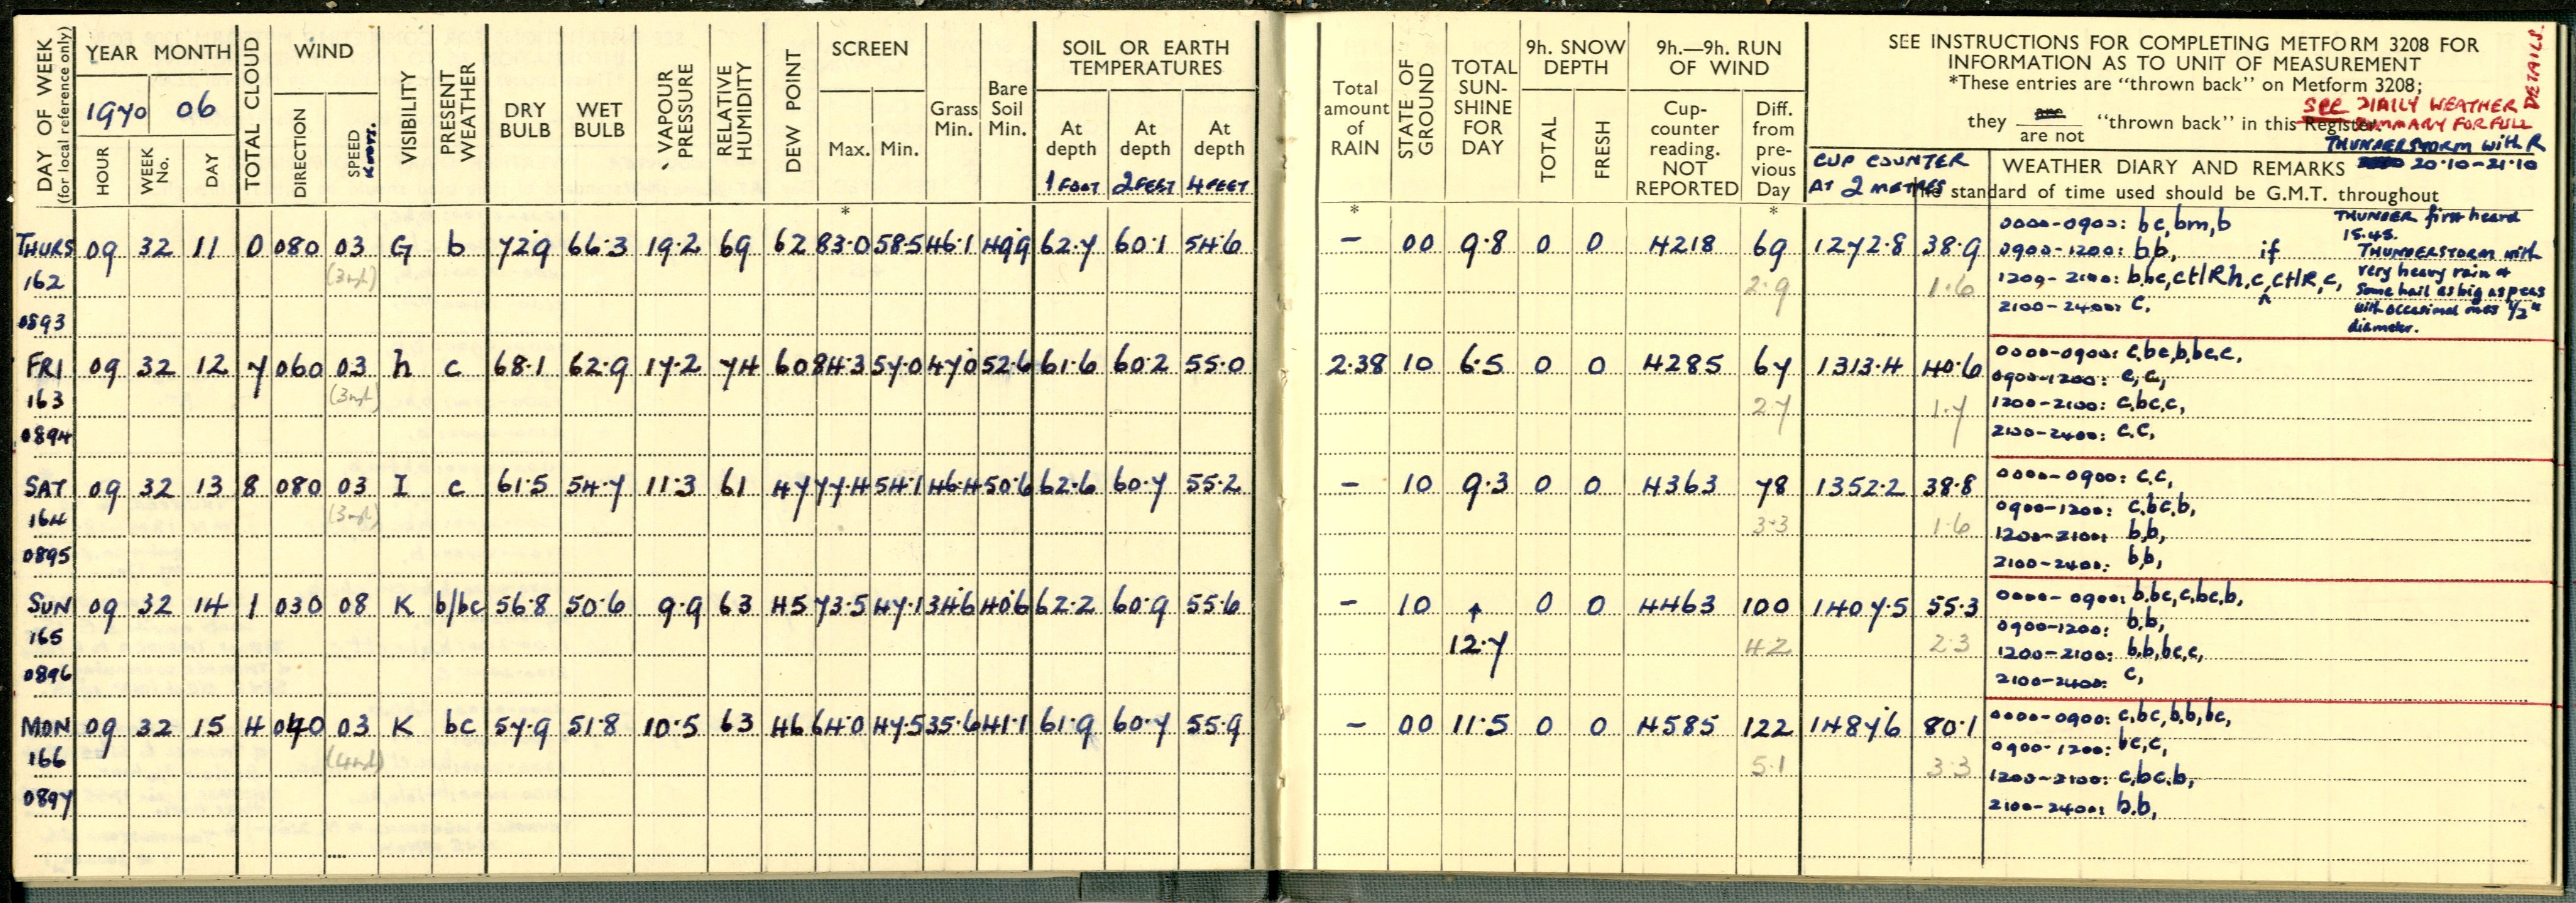 DAY OF WEEK
(for local reference only)
YEAR MONTH
1970 06
HOUR
WEEK No.
DAY
TOTAL CLOUD
WIND
DIRECTION
SPEED
KNOTS.
VISIBILITY
PRESENT WEATHER
DRY BULB
WET BULB
VAPOUR PRESSURE
RELATIVE HUMIDITY
DEW POINT
SCREEN
Max. Min.
Grass Min.
Bare Soil Min.
SOIL OR EARTH TEMPERATURES
At depth 1 FOOT
At depth 2 FEET
At depth 4 FEET
Total amount of RAIN
STATE OF GROUND
TOTAL SUN-SHINE FOR DAY
9h. SNOW DEPTH
TOTAL
FRESH
9h.—9h. RUN OF WIND
Cup-counter reading. NOT REPORTED
Diff. from pre-vious Day
SEE INSTRUCTIONS FOR COMPLETING METFORM 3208 FOR
INFORMATION AS TO UNIT OF MEASUREMENT
*These entries are "thrown back" on Metform 3208;
they are not "thrown back" in this Register.
SEE DIAILY WEATHER
SUMMARY FOR FULL
DETAILS.
CUP COUNTER
AT 2 METRES
WEATHER DIARY AND REMARKS
The standard of time used should be G.M.T. throughout
THUNDERSTORM with R
20.10-21.10
* * *
THURS 09 32 11 0 080 03 G b 72.9 66.3 19.2 69 62 83.0 58.5 46.1 49.9 62.7 60.1 54.6 - 00 9.8 0 0 4218 69 1272.8 38.9
162 (3mph) 2.9 1.6
0893
0000-0900: bc,bm,b
0900-1200: b,b,
1200-2100: b,bc,ctlRh,c,ctlR,c,
if
2100-2400: c,
THUNDER first heard
15.45.
THUNDERSTORM with
very heavy rain &
Some hail as big as peas
with occasional ones 1/2"
diameter.
FRI 09 32 12 7 060 03 h c 68.1 62.9 17.2 74 60 84.3 57.0 47.0 52.6 61.6 60.2 55.0 2.38 10 6.5 0 0 4285 67 1313.4 40.6
163 (3mph) 2.7 1.7
0894
0000-0900: c,bc,b,bc,c,
0900-1200: c,c,
1200-2100: c,bc,c,
2100-2400: c,c,
SAT 09 32 13 8 080 03 I c 61.5 54.7 11.3 61 47 77.4 54.1 46.4 50.6 62.6 60.7 55.2 - 10 9.3 0 0 4363 78 1352.2 38.8
164 (3mph) 3.3 1.6
0895
0000-0900: c,c,
0900-1200: c,bc,b,
1200-2100: b,b,
2100-2400: b,b,
SUN 09 32 14 1 030 08 K b/bc 56.8 50.6 9.9 63 45 73.5 47.1 34.6 40.6 62.2 60.9 55.6 - 10 ↑ 0 0 4463 100 1407.5 55.3
165 12.7 4.2 2.3
0896
0000-0900: b,bc,c,bc,b,
0900-1200: b,b,
1200-2100: b,b,bc,c,
2100-2400: c,
MON 09 32 15 4 040 03 K bc 57.9 51.8 10.5 63 46 64.0 47.5 35.6 41.1 61.9 60.7 55.9 - 00 11.5 0 0 4585 122 1487.6 80.1
166 (4mph) 5.1 3.3
0897
0000-0900: c,bc,b,b,bc,
0900-1200: bc,c,
1200-2100: c,bc,b,
2100-2400: b,b,